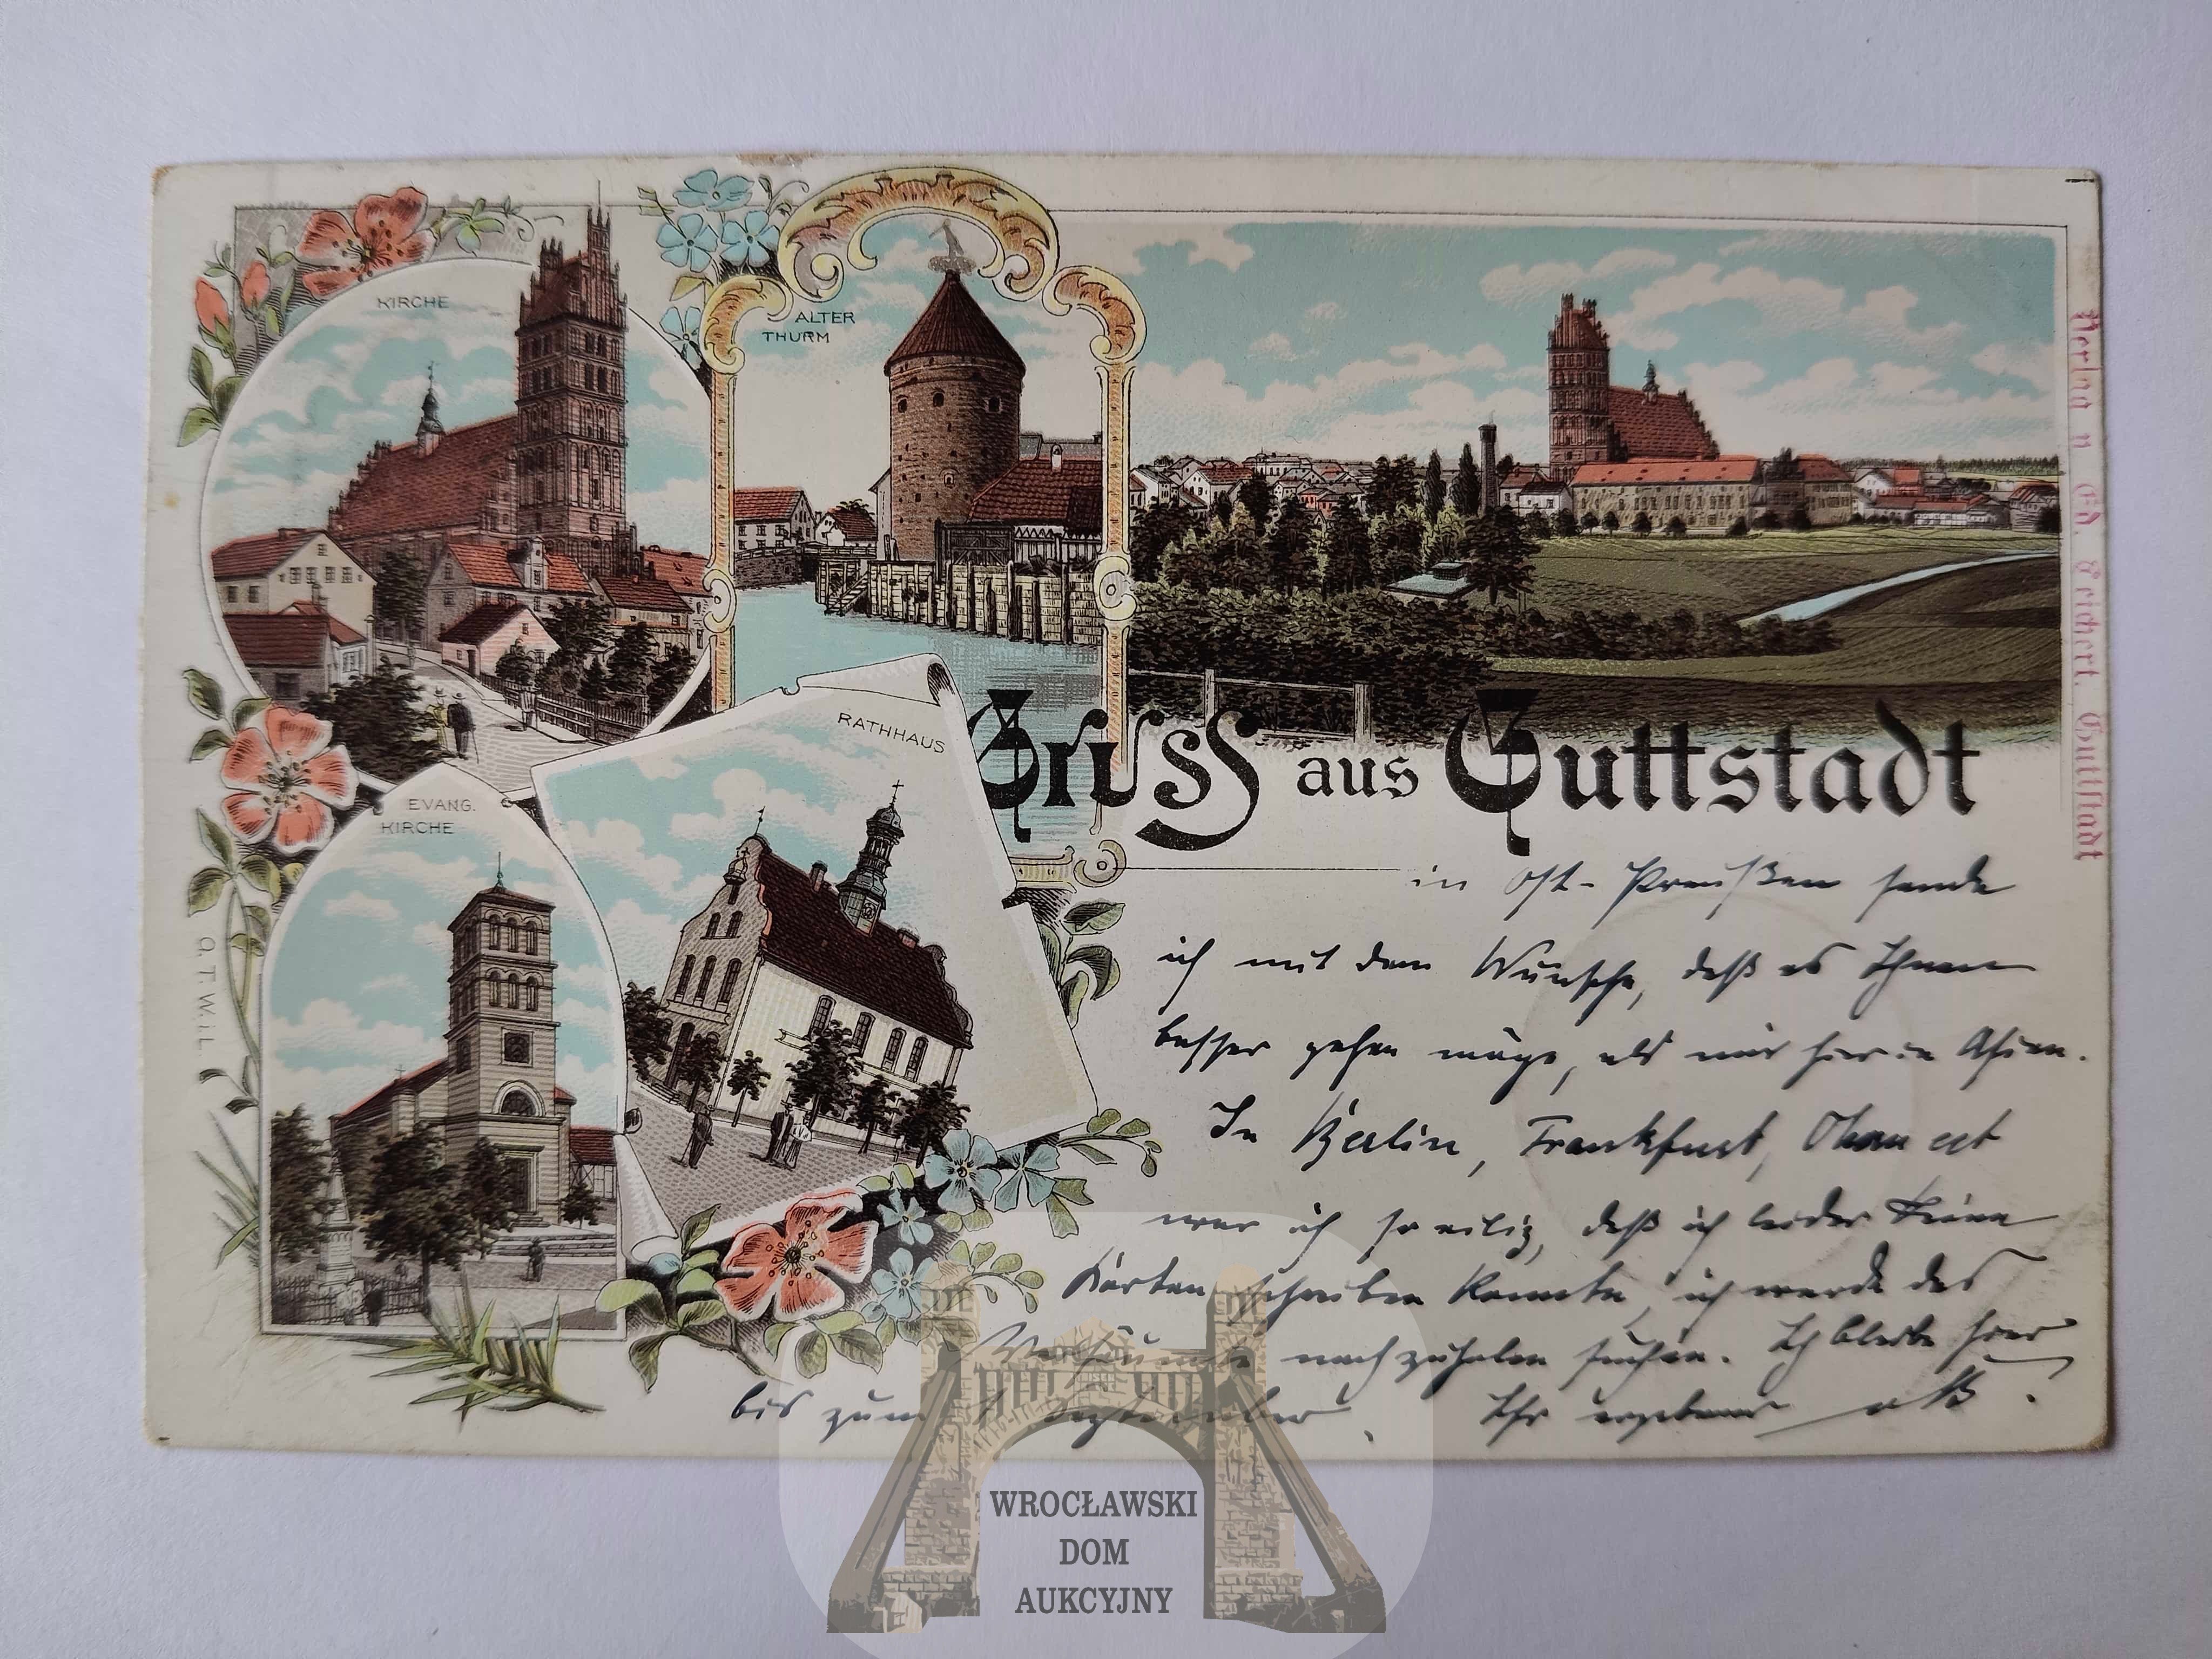 KIRCHE
ALTER
THURM
RATHHAUS
EVANG.
KIRCHE
Gruss aus Guttstadt
Verlag v. Ed. Teichert. Guttstadt
in Ost-Preußen sende
ich mit dem Wunsche, daß es Ihnen
besser gehen möge, als mir hier in Asien.
In Berlin, Frankfurt,
war ich so eilig, daß ich leider keine
Karten schreiben konnte, ich werde das
Versäumte nachzuholen suchen. Ich bleibe hier
bis zum September. Ihr ergebener
WROCŁAWSKI
DOM
AUKCYJNY